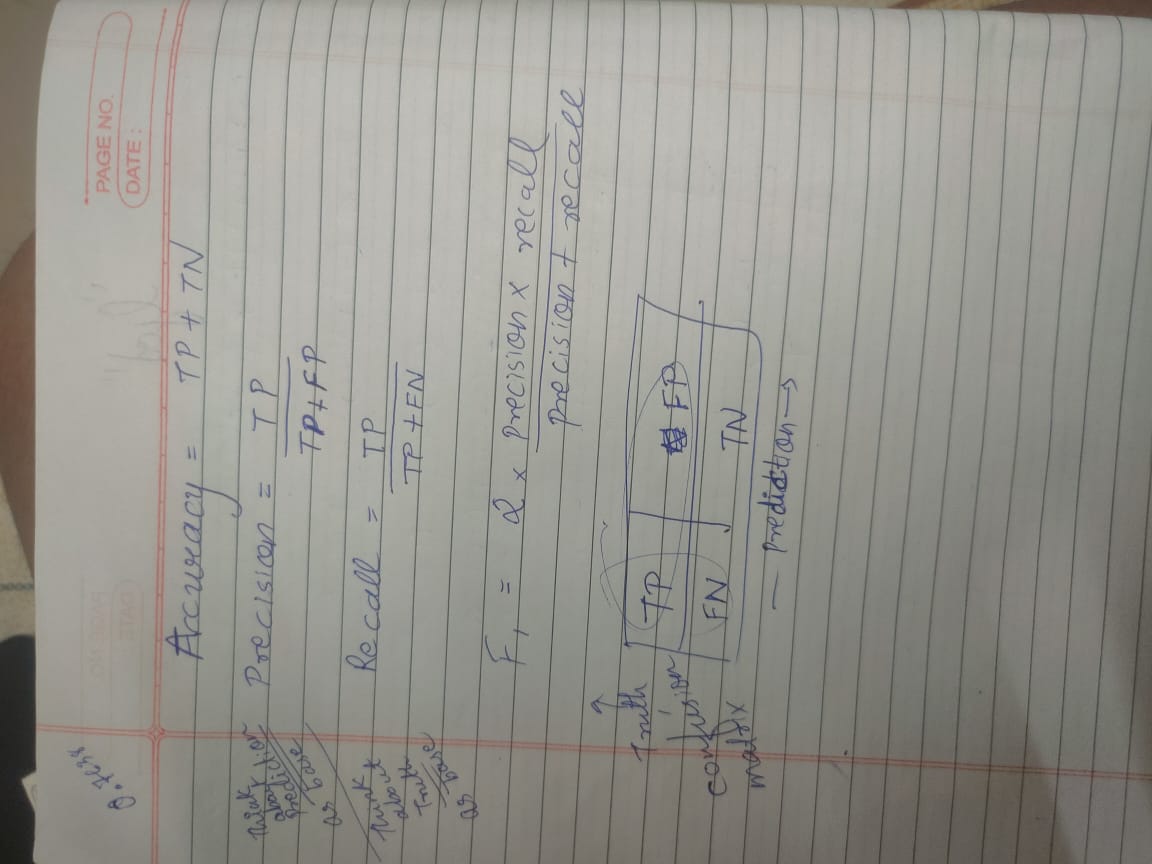 0.7638
PAGE NO.
DATE :
Accuracy = TP + TN
Think
about
Prediction
as base
Precision = TP
TP+FP
Think
about
Truth
as base
Recall = TP
TP+FN
F1 = 2 x precision x recall
precision + recall
Truth
confusion
matrix
TP FP
FN TN
— Prediction →